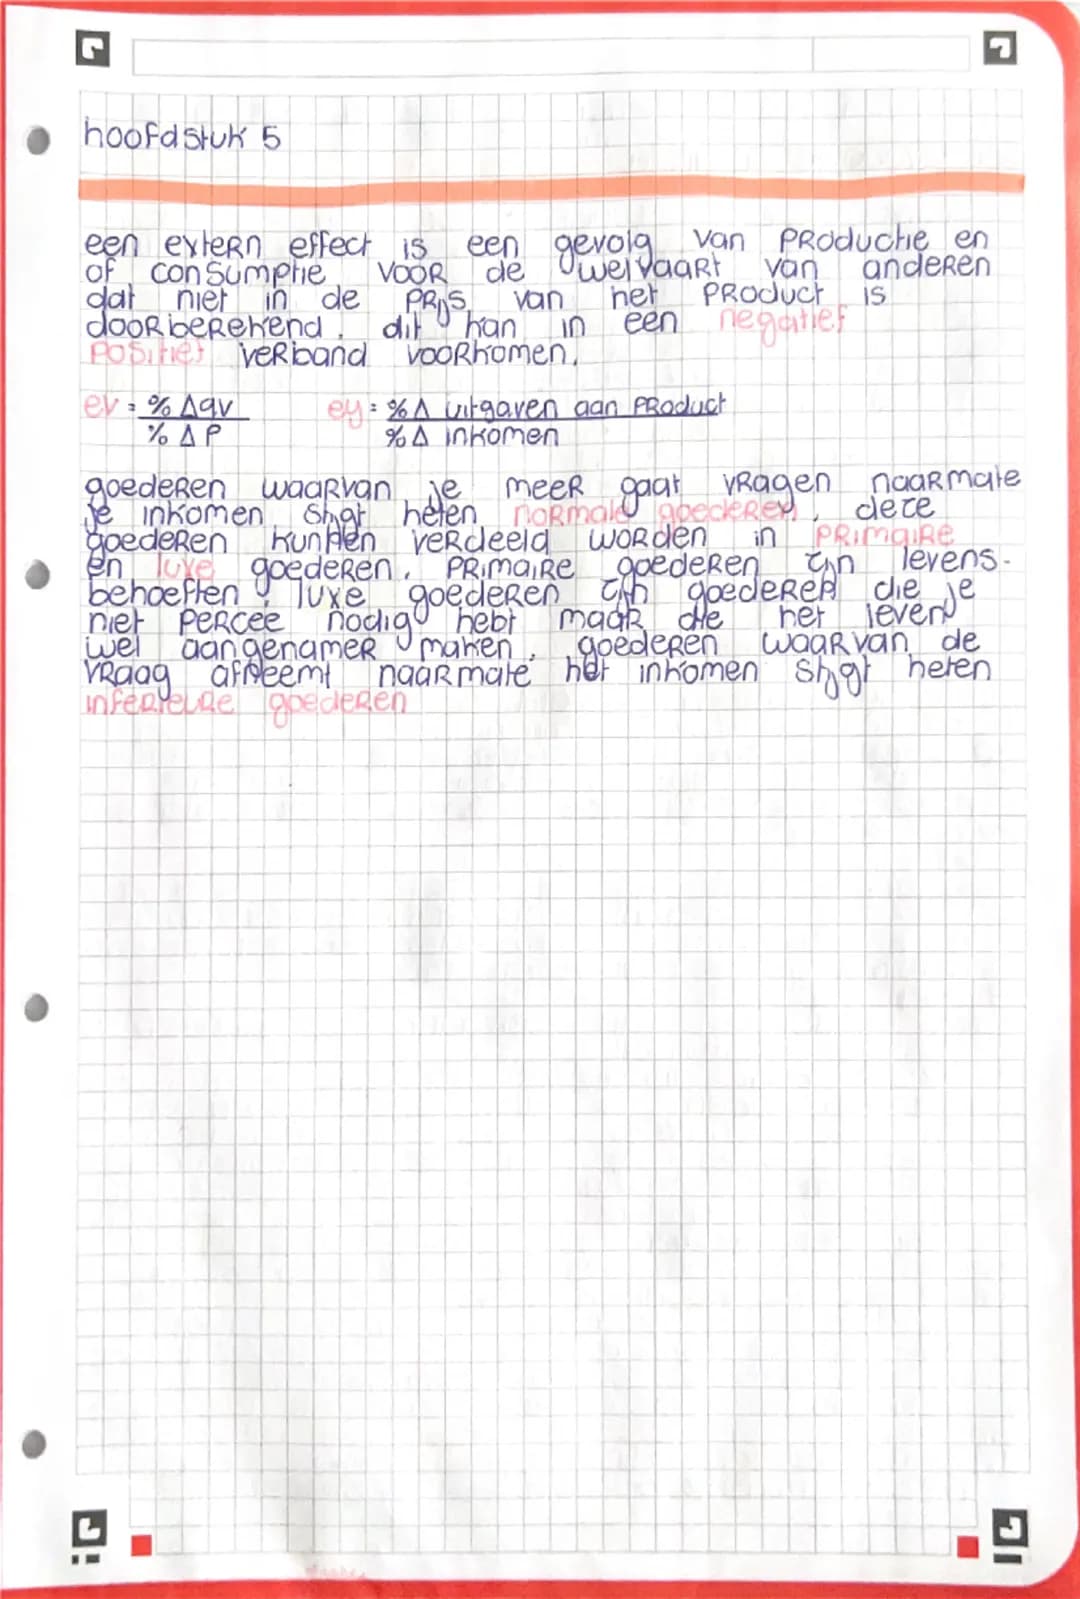 hoofdstuk 5
een extern effect is een gevolg van productie en
of consumptie voor de welvaart van anderen
dat niet in de prijs van het product is
doorberekend. dit kan in een negatief
positief verband voorkomen.
ev = % Δqv ey = % Δ uitgaven aan product
% Δ P % Δ inkomen
goederen waarvan je meer gaat vragen naarmate
je inkomen stijgt heten normale goederen. deze
goederen kunnen verdeeld worden in primaire
en luxe goederen. primaire goederen zijn levens-
behoeften. luxe goederen zijn goederen die je
niet percee nodig hebt maar die het leven
wel aangenamer maken. goederen waarvan de
vraag afneemt naarmate het inkomen stijgt heten
inferieure goederen